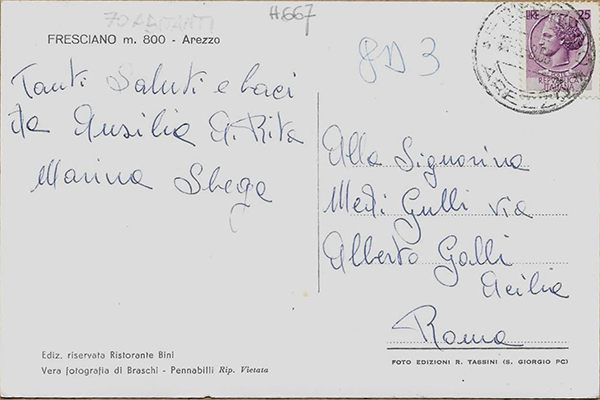 70 ABITANTI
H.667
FRESCIANO m. 800 - Arezzo
LIRE 25
AREZZO
8D 3
Tanti Saluti e baci
da Ausilia A. Rita
Marina
Alla Signorina
Gulli via
Alberto Galli
Acilia
Roma
Ediz. riservata Ristorante Bini
Vera fotografia di Braschi - Pennabilli Rip. Vietata
FOTO EDIZIONI R. TASSINI (S. GIORGIO PC)